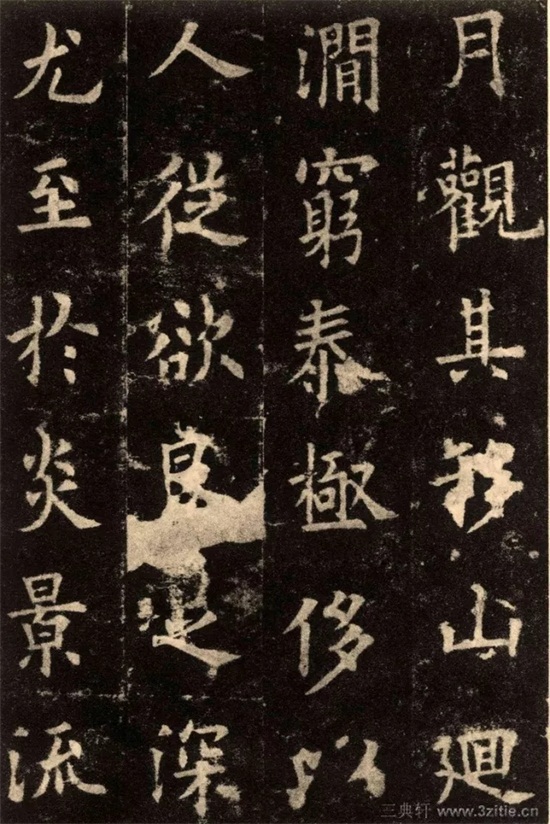 月觀其移山迴
澗窮泰極侈以
人從欲良足深
尤至於炎景流
三典轩 www.3zitie.cn